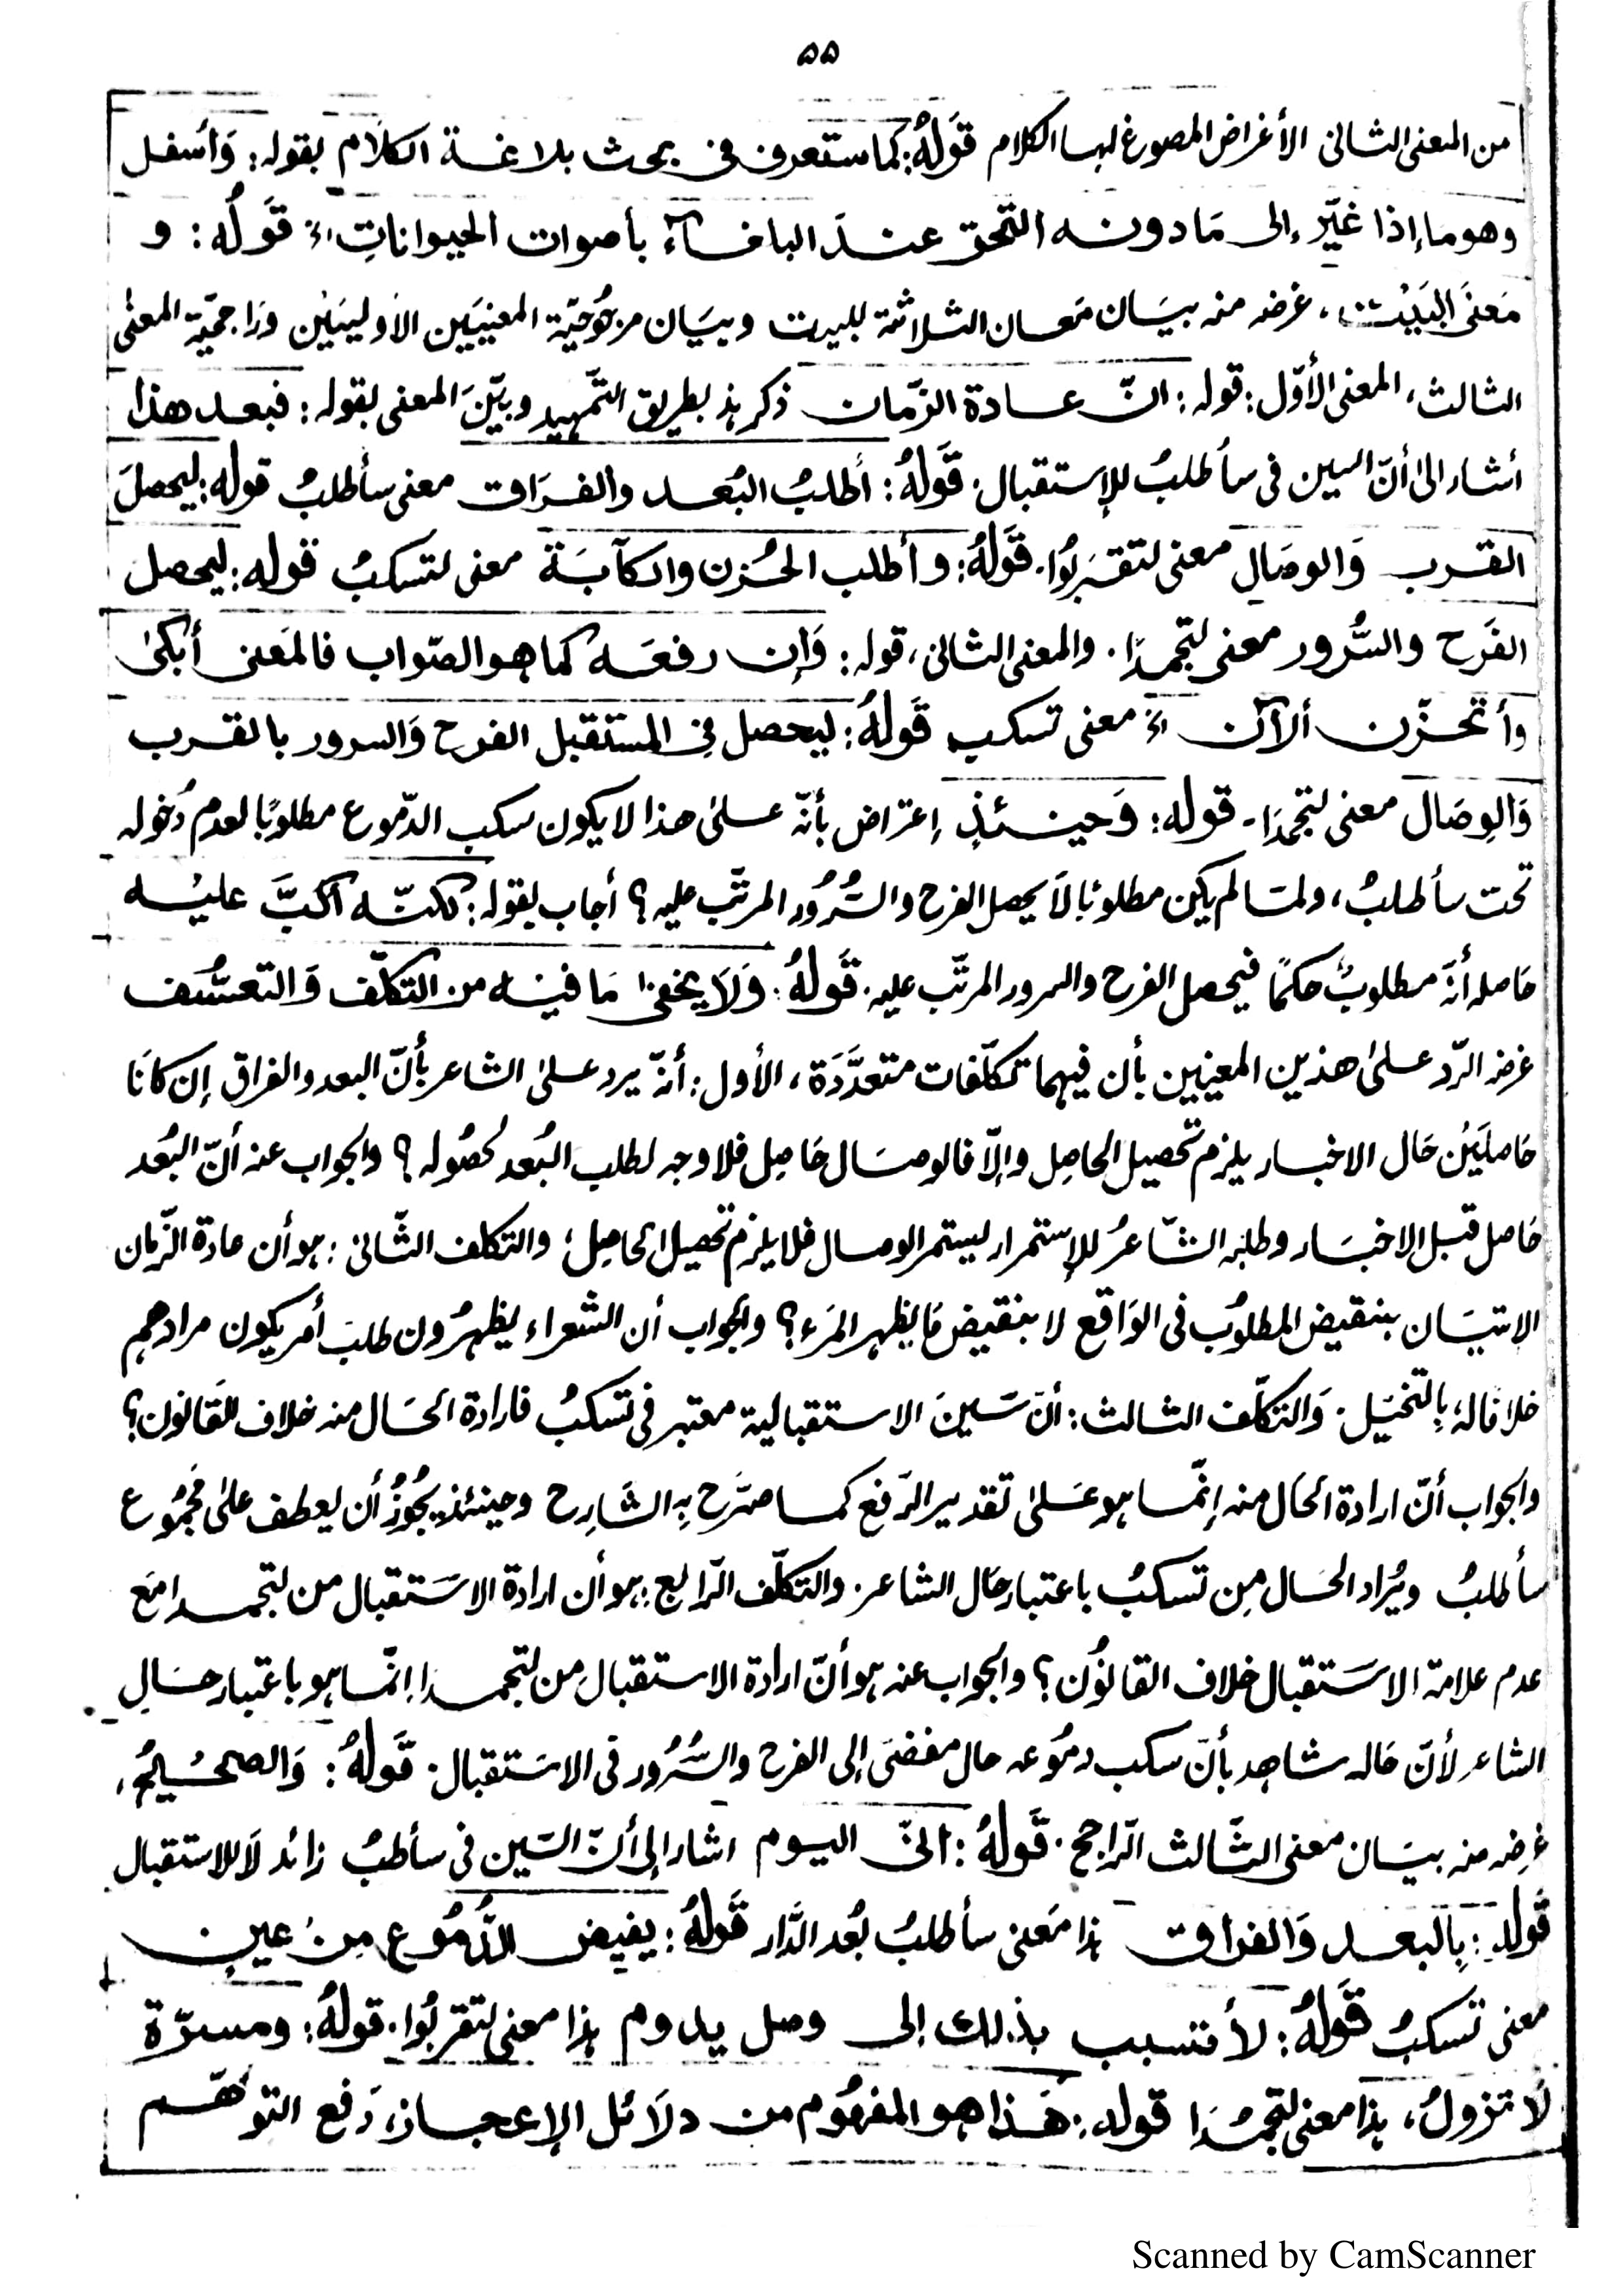 ٥٥
من المعنى الثانى الأغراض المصوغ لها الكلام قَولهُ: كما ستعرف فى بحث بلاغة الكلام بقوله: وَأسفل
وهو ما إذا غيّر إلى مَا دونه التحق عندَ البلغاءَ بأصوات الحيواناتِ اﻫ قَولُه: و
مَعنَى البَيْت، غرضه منه بيَان مَعان الثلاثة للبيت وبيَان مرجُوحيّة المعنيَين الأوليَيْن ورَاجحيّة المعنىٰ
الثالث، المعنى الأوّل: قوله: انّ عادة الزّمان ذكر هذ بطريق التّمهيد وبيّنَ المعنى بقوله: فبعد هذا
أشار الىٰ أنّ السين فى سأطلبُ للإستقبال. قَولهُ: أطلبُ البُعد والفرَاق معنى سأطلبُ قوله: ليحصلَ
القرب وَالوصَال معنى لتقرَبُوا. قَولهُ: وأطلب الحُزن والكآبَة معنى لتسكبُ قوله: ليحصل
الفَرح والسُّرور معنى لتجمدَا. والمعنى الثانى، قوله: وَإن رفعَه كما هو الصّواب فالمَعنى أبكىٰ
وأتحزّن ألآن اﻫ معنى تسكب قَولهُ: ليحصل فِى المستقبل الفرح وَالسرور بالقرب
وَالوِصَال معنى لتجمدَا. قوله: وَحينئذٍ إعتراض بأنّه علىٰ هذا لا يكون سكب الدّموع مطلوبًا لعدم دُخوله
تحت سأطلبُ، ولمّا لم يكن مطلوبًا لَا يحصل الفرح والسُّرُور المرتّب عليه؟ أجاب بقوله: لكنّه أكبَّ عليْه
حَاصله أنّه مطلوبٌ حكمًا فيحصل الفرح والسرور المرتّب عليه. قَولهُ: وَلَا يخفىٰ مَا فيْه من التكلّف وَالتعسُّف
غرضه الرّد علىٰ هذين المعنيين بأن فيهما تكلّفات متعدَّدَة، الأول: أنّه يرد علىٰ الشاعر بأنّ البعد والفراق إن كانَا
حَاصلَيْن حَال الاخبار يلزم تحصيل الحاصل وإلّا فالوصَال حَاصِل فلا وجه لطلب البُعد لحُصُوله؟ والجواب عنه أنّ البُعد
حَاصل قبل الاخبَار وطلبه الشّاعرُ للإستمرار ليستمر الوصال فلا يلزم تحصيل الحَاصِل؛ والتكلف الثّانى: هو أن عادة الزّمان
الإتيَان بنقيض المطلوُب فى الوَاقع لا بنقيض مَا يظهر المَرء؟ والجواب أن الشعراء يظهرُون طلبَ أمر يكون مرادهم
خلافا له؛ بالتخيّل. وَالتكلّف الثالث: أنّ سَينَ الاستقبالية معتبر فى تسكبُ فارادة الحَال منه خلاف القَانون؟
والجواب أنّ ارادة الحَال منه إنّما هو عَلىٰ تقدير الرّفع كما صَرّح بِه الشَارِح وحينئذ يجُوزُ أن يعطف علىٰ مجمُوع
سأطلبُ ويُراد الحَال مِن تسكبُ باعتبار حَال الشاعر. والتكلّف الرّابع: هو أن ارادة الاستَقبال من لتجمدا مَع
عدم علامة الاستَقبال خلاف القانوُن؟ والجواب عنه هو أنّ ارادة الاستقبال من لتجمدا إنّما هو باعتبار حَال
الشاعر لأنّ حَاله شاهد بأنّ سكب دمُوعه حال مفضى إلى الفرح والسُّرُور فى الاستَقبال. قَولهُ: وَالصحيْحُ،
غرضه منه بيَان معنى الثّالث الرّاجح. قَولهُ: انىّ اليوم اشار إلى أنّ السّين فى سأطلبُ زائد لَا للاستقبال
قَولهِ: بِالبعد وَالفراق هذا مَعنى سأطلبُ بُعد الدَّار قَولهُ: يفيض الدُّمُوع مِنْ عينى
معنى تسكبُ قَولهُ: لأتسبب بذلك إلى وصل يدوم هذا معنى لتقربُوا. قولهُ: ومسرّة
لَا تزولُ، هذا معنى لتجمُدَا قوله: هَذا هو المفهُوم من دلَائل الإعجاز، دَفع التوهّم
Scanned by CamScanner